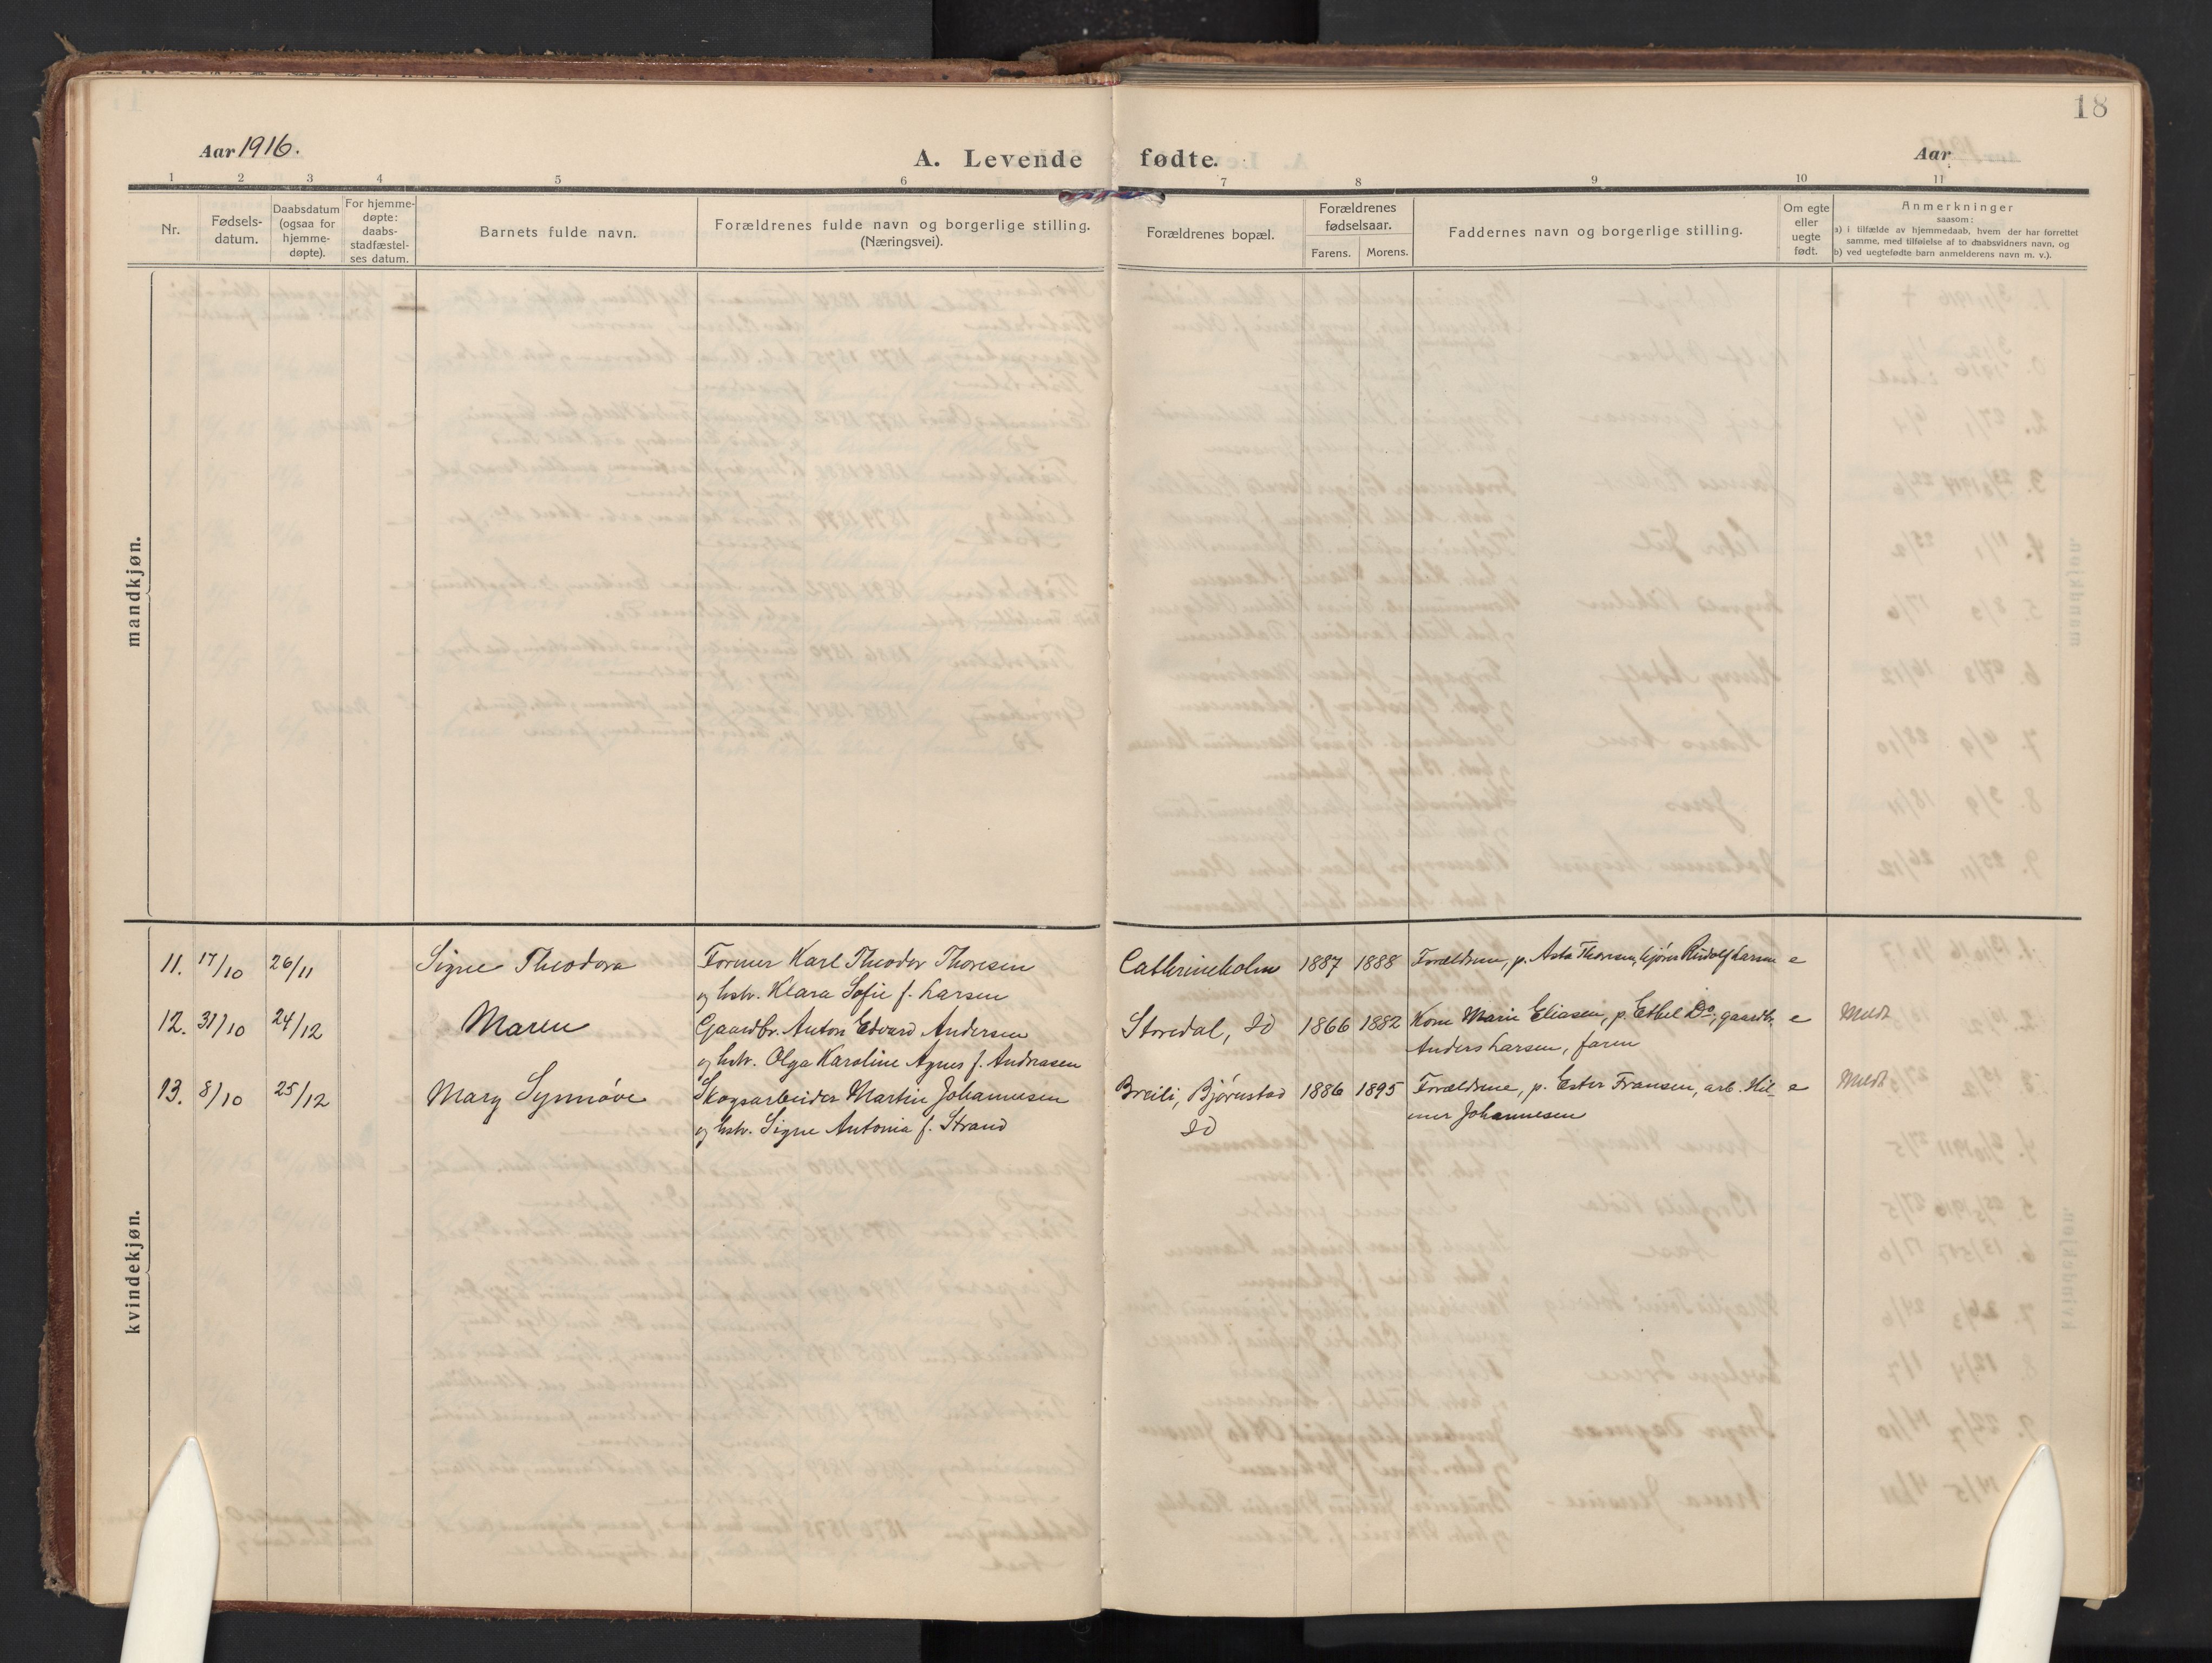 18
Aar 1916.
A. Levende fødte.
Aar
1 2 3 4 5 6 7 8 9 10 11
Nr.
Fødsels-
datum.
Daabsdatum
(ogsaa for
hjemme-
døpte).
For hjemme-
døpte:
daabs-
stadfæstel-
ses datum.
Barnets fulde navn.
Forældrenes fulde navn og borgerlige stilling.
(Næringsvei).
Forældrenes bopæl.
Forældrenes
fødselsaar.
Farens. Morens.
Faddernes navn og borgerlige stilling.
Om egte
eller
uegte
født.
Anmerkninger
saasom:
a) i tilfælde av hjemmedaab, hvem der har forrettet
samme, med tilføielse af to daabsvidners navn, og
b) ved uegtefødte barn anmelderens navn m. v.).
mandkjøn.
11. 17/10 26/11 Signe Theodora Former Karl Theodor Thoresen Cathrineholm 1887 1888 Forældrene, p. Asta Thoresen, kjører Rudolf Larsen e
og hstr. Klara Sofie f. Larsen
12. 31/10 24/12 Maren Gaardbr. Anton Edvard Andersen Storedal, Id 1866 1882 Kone Marie Eliasen, p. Ethel Do, gaardbr. e Meldt
og hstr. Olga Karoline Agnes f. Andreasen Anders Larsen, faren
13. 8/10 25/12 Mary Synnøve Skogsarbeider Martin Johannesen Breili, Bjørnstad 1886 1895 Forældrene, p. Ester Fransen, arb. Hil- e Meldt
og hstr. Signe Antonia f. Strand Id mer Johannesen
kvindekjøn.